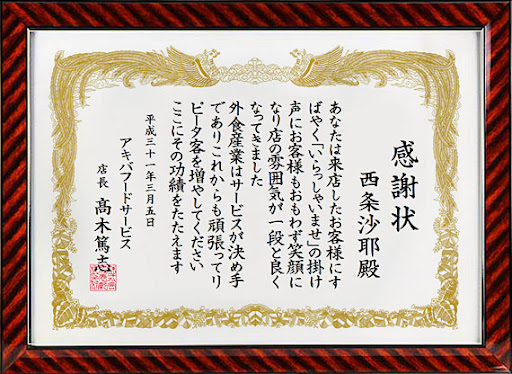 感謝状
西条沙耶殿
あなたは来店したお客様にす
ばやく「いらっしゃいませ」の掛け
声にお客様もおもわず笑顔に
なり店の雰囲気が一段と良く
なってきました
外食産業はサービスが決め手
でありこれからも頑張ってリ
ピータ客を増やしてください
ここにその功績をたたえます
平成三十一年三月五日
アキバフードサービス
店長 高木篤志